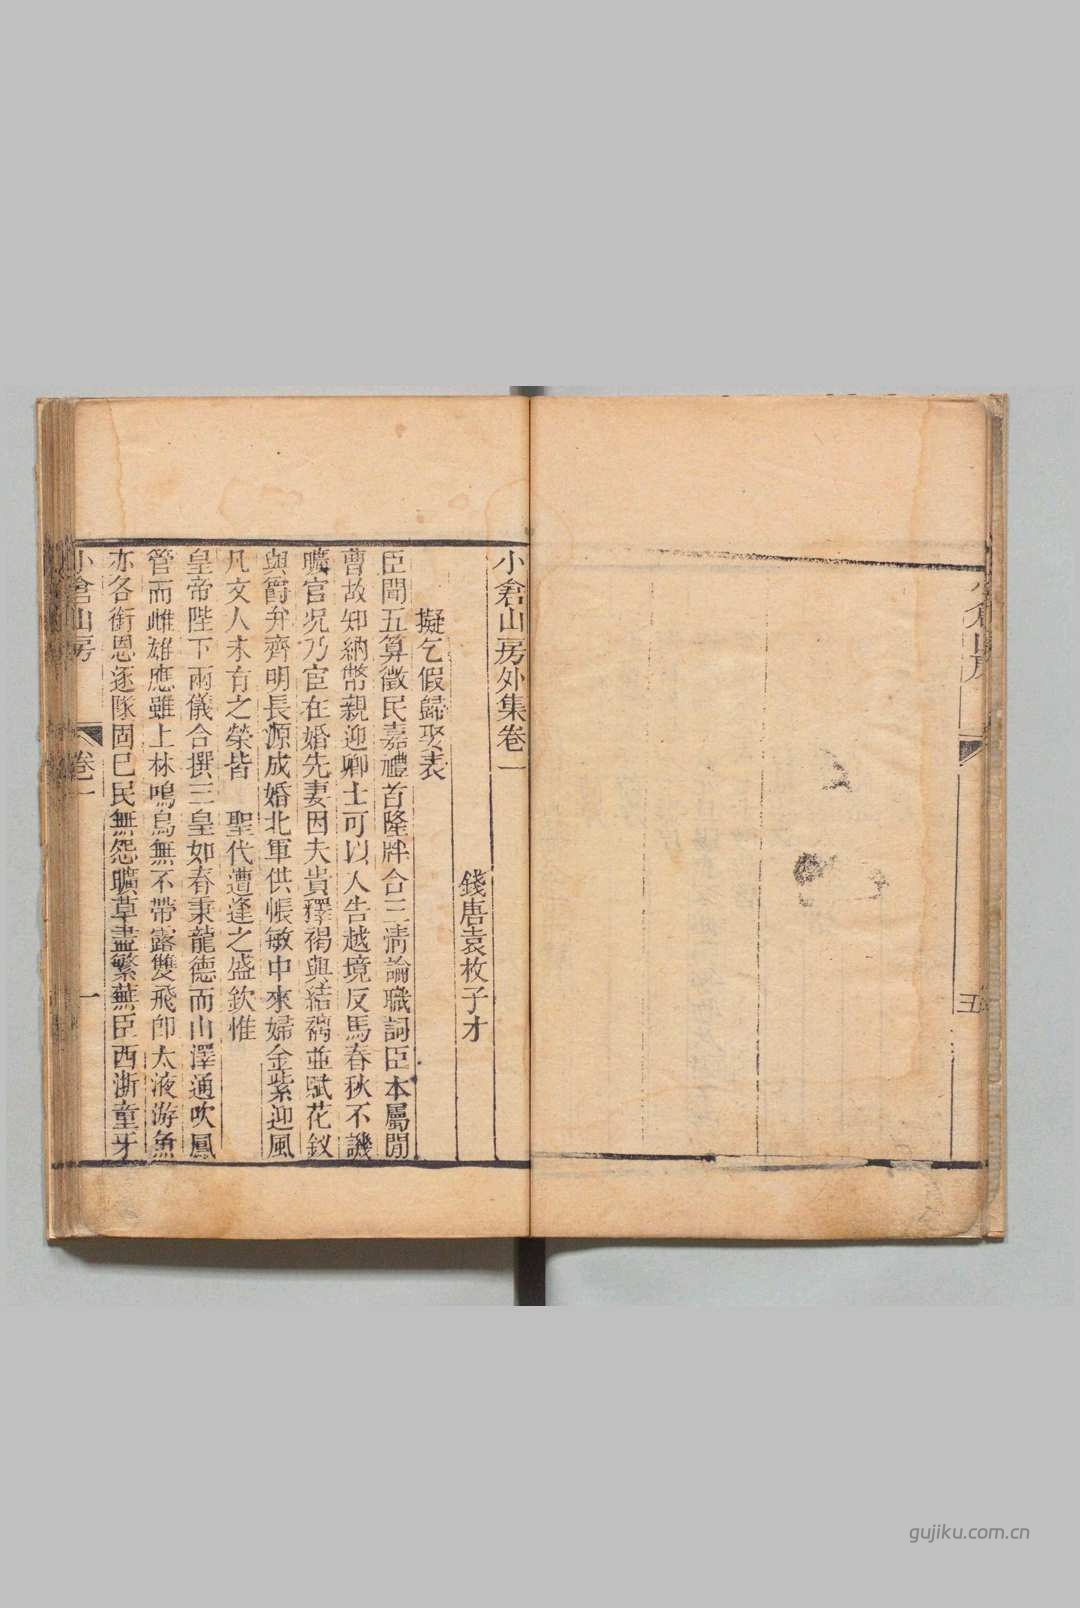 小倉山房
五
小倉山房外集卷一
錢唐袁枚子才
擬乞假歸娶表
臣聞五算徵民嘉禮首隆牉合三清論職詞臣本屬閒
曹故知納幣親迎卿士可以入告越境反馬春秋不譏
曠官况乃宦在婚先妻因夫貴釋褐與結褵並賦花釵
與爵弁齊明長源成婚北軍供帳敏中來婦金紫迎風
凡文人未有之榮皆　聖代遭逢之盛欽惟
皇帝陛下兩儀合撰三皇如春秉龍德而山澤通吹鳳
管而雌雄應雖上林鳴鳥無不帶露雙飛卽太液游魚
亦各銜恩逐隊固已民無怨曠草盡繁蕪臣西浙童牙
小倉山房
卷一
一
gujiku.com.cn